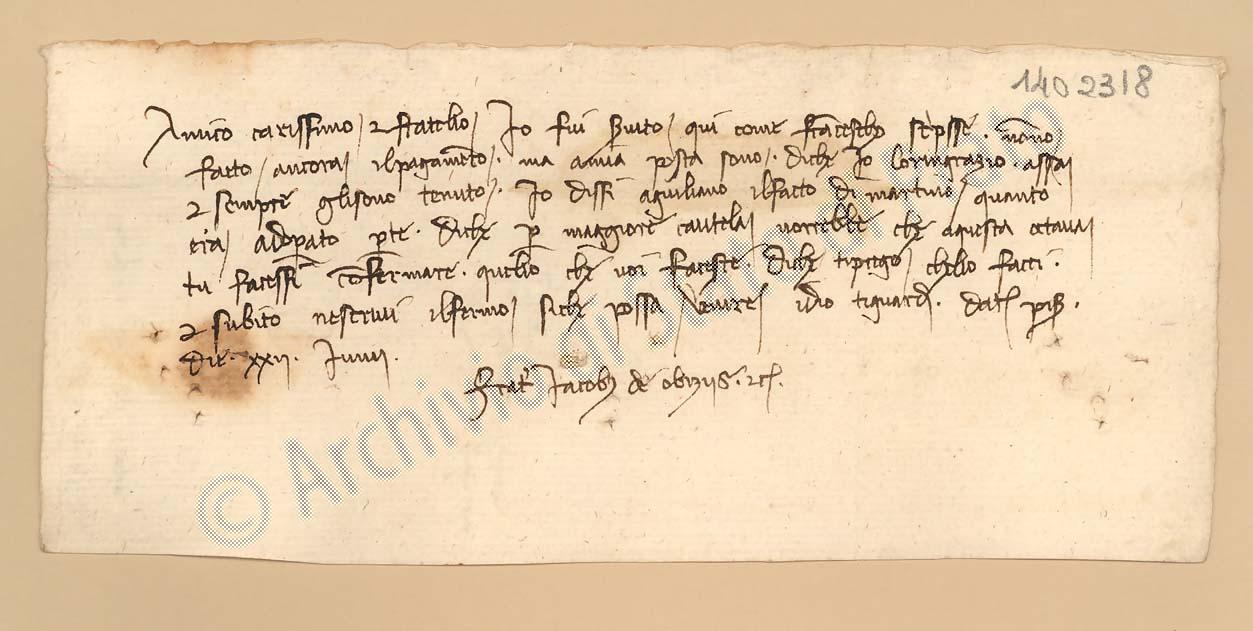 1402318
Amico carissimo / et fratello / Io fui s(er)uito / qui come francescho scrisse . nonno
facto / ancora / il pagamento . ma a mia posta sono . di che Io lo ringrazio . assai
et sempre gli sono tenuto . Io dissi a guiliano il facto di martino / quanto
era / adoperato per te . di che per maggiore cautela / vorrebbe che a questa octaua
tu facessi confermare . quello che voi faceste . di che ti prego / chello facci .
et subito ne scriui il fermo / siche possa venire idio ti guardi . dat
die . xxii . Junii .
frater Jacobus de obiziis . etc .
© Archivio di Stato di Prato